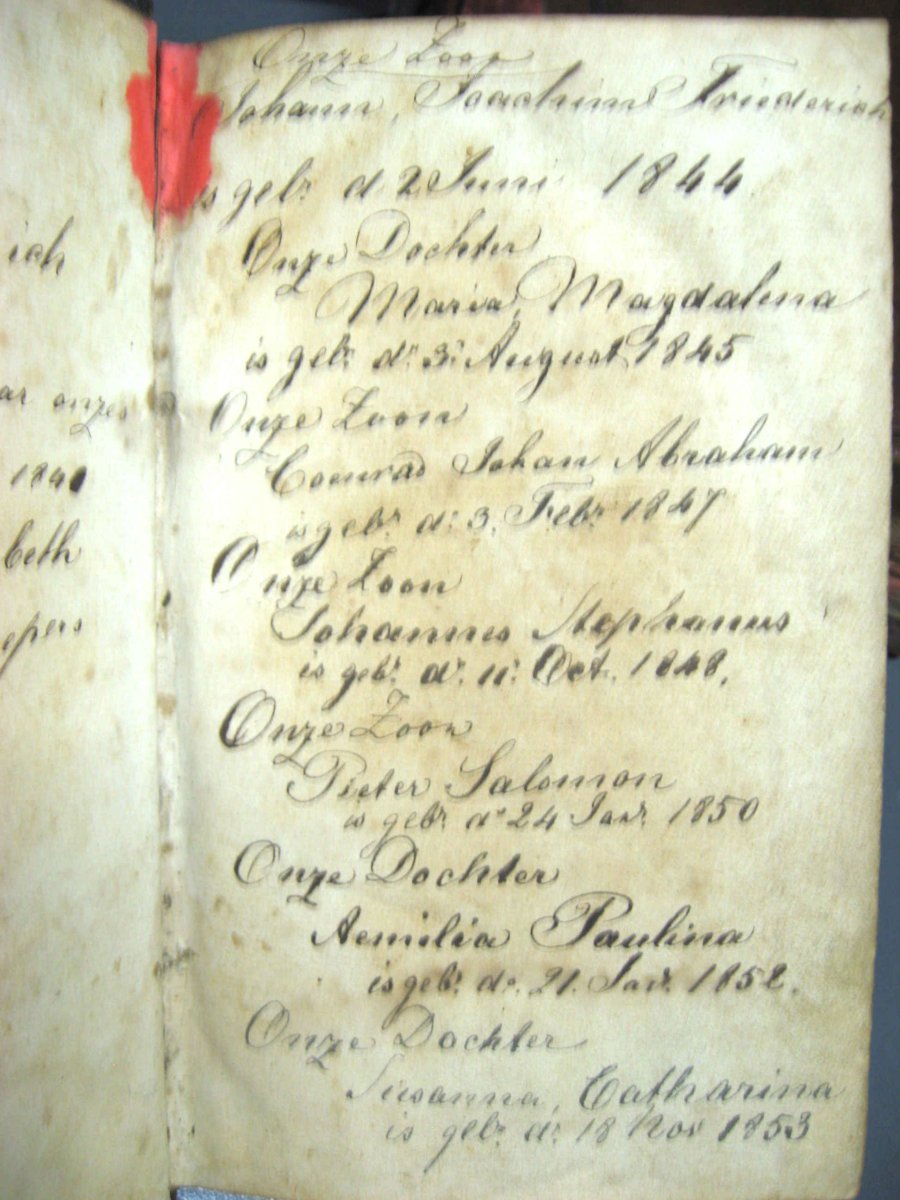 ich
ar onzes
1840
beth
epers
Onze Zoon
Johann, Joachim Friederich
is gebr. d 2 Juni 1844
Onze Dochter
Maria, Magdalena
is gebr. dn. 3n. August 1845
Onze Zoon
Coenrad Johan Abraham
is gebr. d: 3. Febr. 1847
Onze Zoon
Johannes Stephanus
is gebr. dn. 11n. Oct. 1848.
Onze Zoon
Pieter Salomon
is gebr. dn 24 Janr. 1850
Onze Dochter
Aemilia Paulina
is gebr. dn. 21. Janr. 1852.
Onze Dochter
Susanna, Catharina
is gebr. dn: 18 Nov 1853